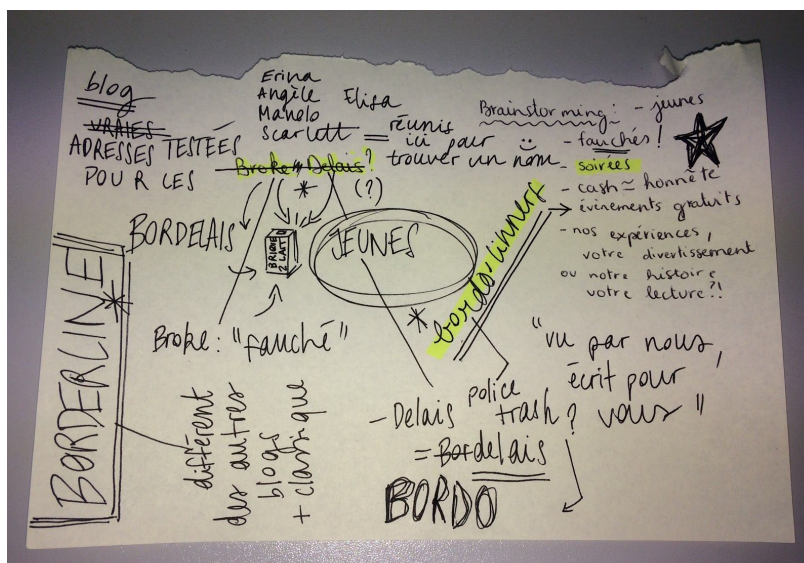 blog
VRAIES
ADRESSES TESTÉES
POUR LES
Erina
Angèle
Manolo
Scarlett
Elisa
= réunis
ici pour
trouver un nom
Broke, Delais?
(?)
Brainstorming: - jeunes
- fauchés!
- soirées
- cash ≃ honnête
évènements gratuits
- nos expériences,
votre divertissement
ou notre histoire,
votre lecture?!
BORDELAIS
BRIQUE
2 LAIT
JEUNES
bordo'linners
BORDERLINE
Broke: "fauché"
différent
des autres
blogs
+ classique
- Delais
= Bordelais
police
trash?
BORDO
"vu par nous,
écrit pour
vous"